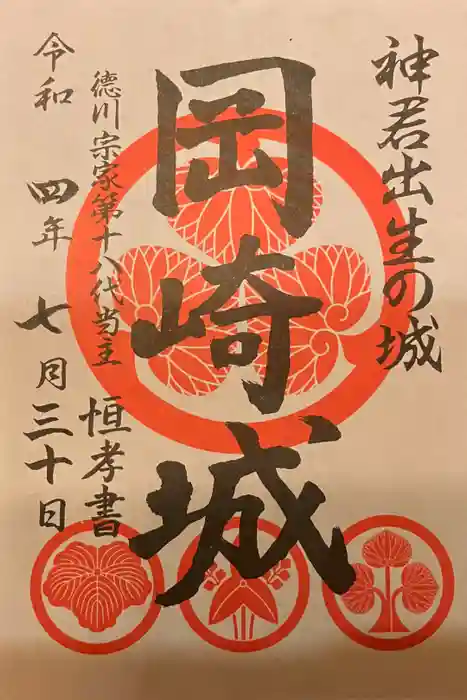 神君出生の城
岡崎城
徳川宗家第十八代当主
恒孝書
令和四年七月三十日